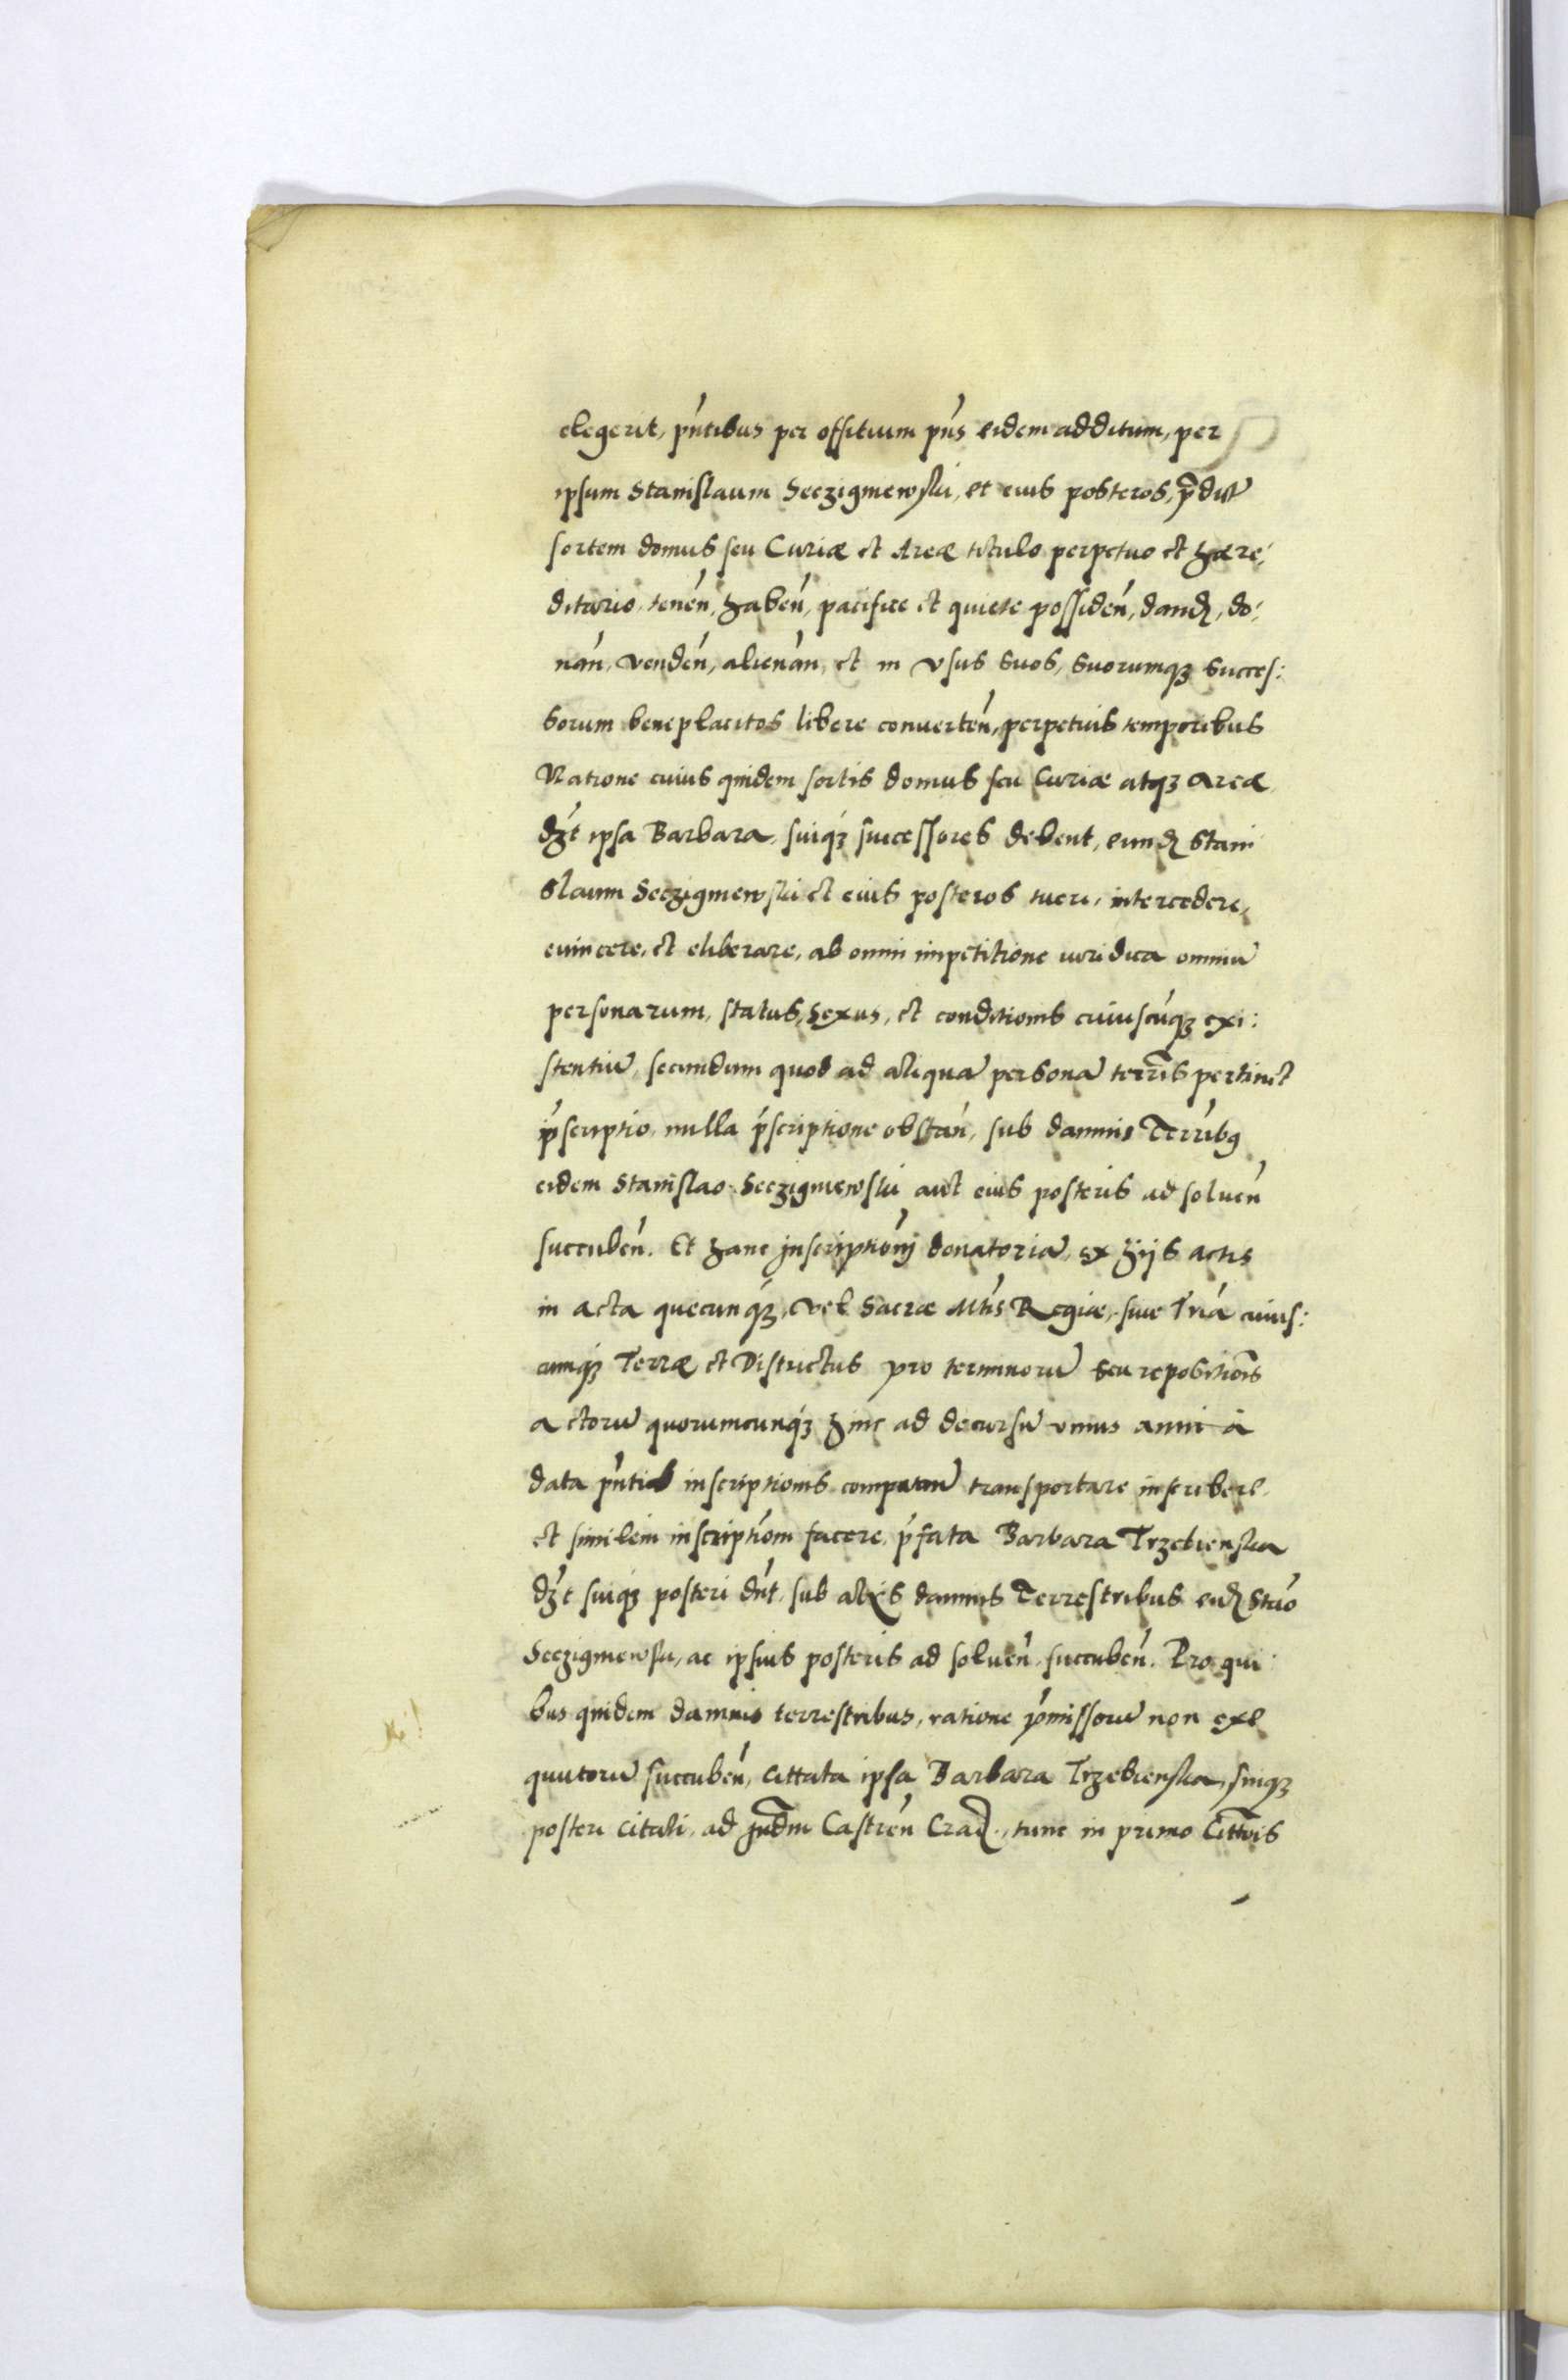 elegerit, pn̄tibus per offitium pn̄s eidem additum, per
ipsum Stanislaum Seczigniewski, et eius posteros, p̄dict
sortem domus seu Curiæ et Areæ titulo perpetuo et hære:
ditario, tenen̄, haben̄, pacifice et quiete possiden̄, dand, do:
nan̄, venden̄, alienan̄, et in vsus suos, suorumq3 succes:
sorum beneplacitos libere conuerten̄, perpetuis temporibus
Ratione cuius quidem sortis domus seu Curiæ atq3 Areæ
d3t ipsa Barbara, suiq3 successores debent, eund Stani
slaum Seczigniewski et eius posteros tueri, intercedere,
euincere, et eliberare, ab omni impetitione iuridica omniū
personarum, status, sexus, et conditionis cuiuscūq3 exi:
stentiū, secundum quod ad aliquā personā terrīs pertinet
p̄scriptio, nulla p̄scriptione obstan̄, sub damnis Terrīb9
eidem Stanislao Seczigniewski aut eius posteris ad soluen̄
succuben̄. Et hanc Inscriptionj donatoriā, ex hijs actis
in acta quecunq3, vel Sacræ Mt̄is Regiæ, siue Tr̄ia cuius:
cumq3 Terræ et Districtus pro terminorū seu repositionīs
actorū quorumcunq3 hinc ad decursū vnius anni à
data pn̄tis inscriptionis computan̄ transportare inscribere
et similem inscriptīom facere, p̄fata Barbara Trzebienska
d3t suiq3 posteri dn̄t, sub alijs damnis Terrestribus eid Stāo
Seczigniewski, ac ipsius posteris ad soluen̄ succuben̄. Pro qui
bus quidem damnis terrestribus, ratione p̄missorū non exe
quutorū succuben̄, cittata ipsa Barbara Trzebienska, suiq3
posteri citati, ad Jud̄m Castren̄ Crac., tunc in primo Citt̄nis